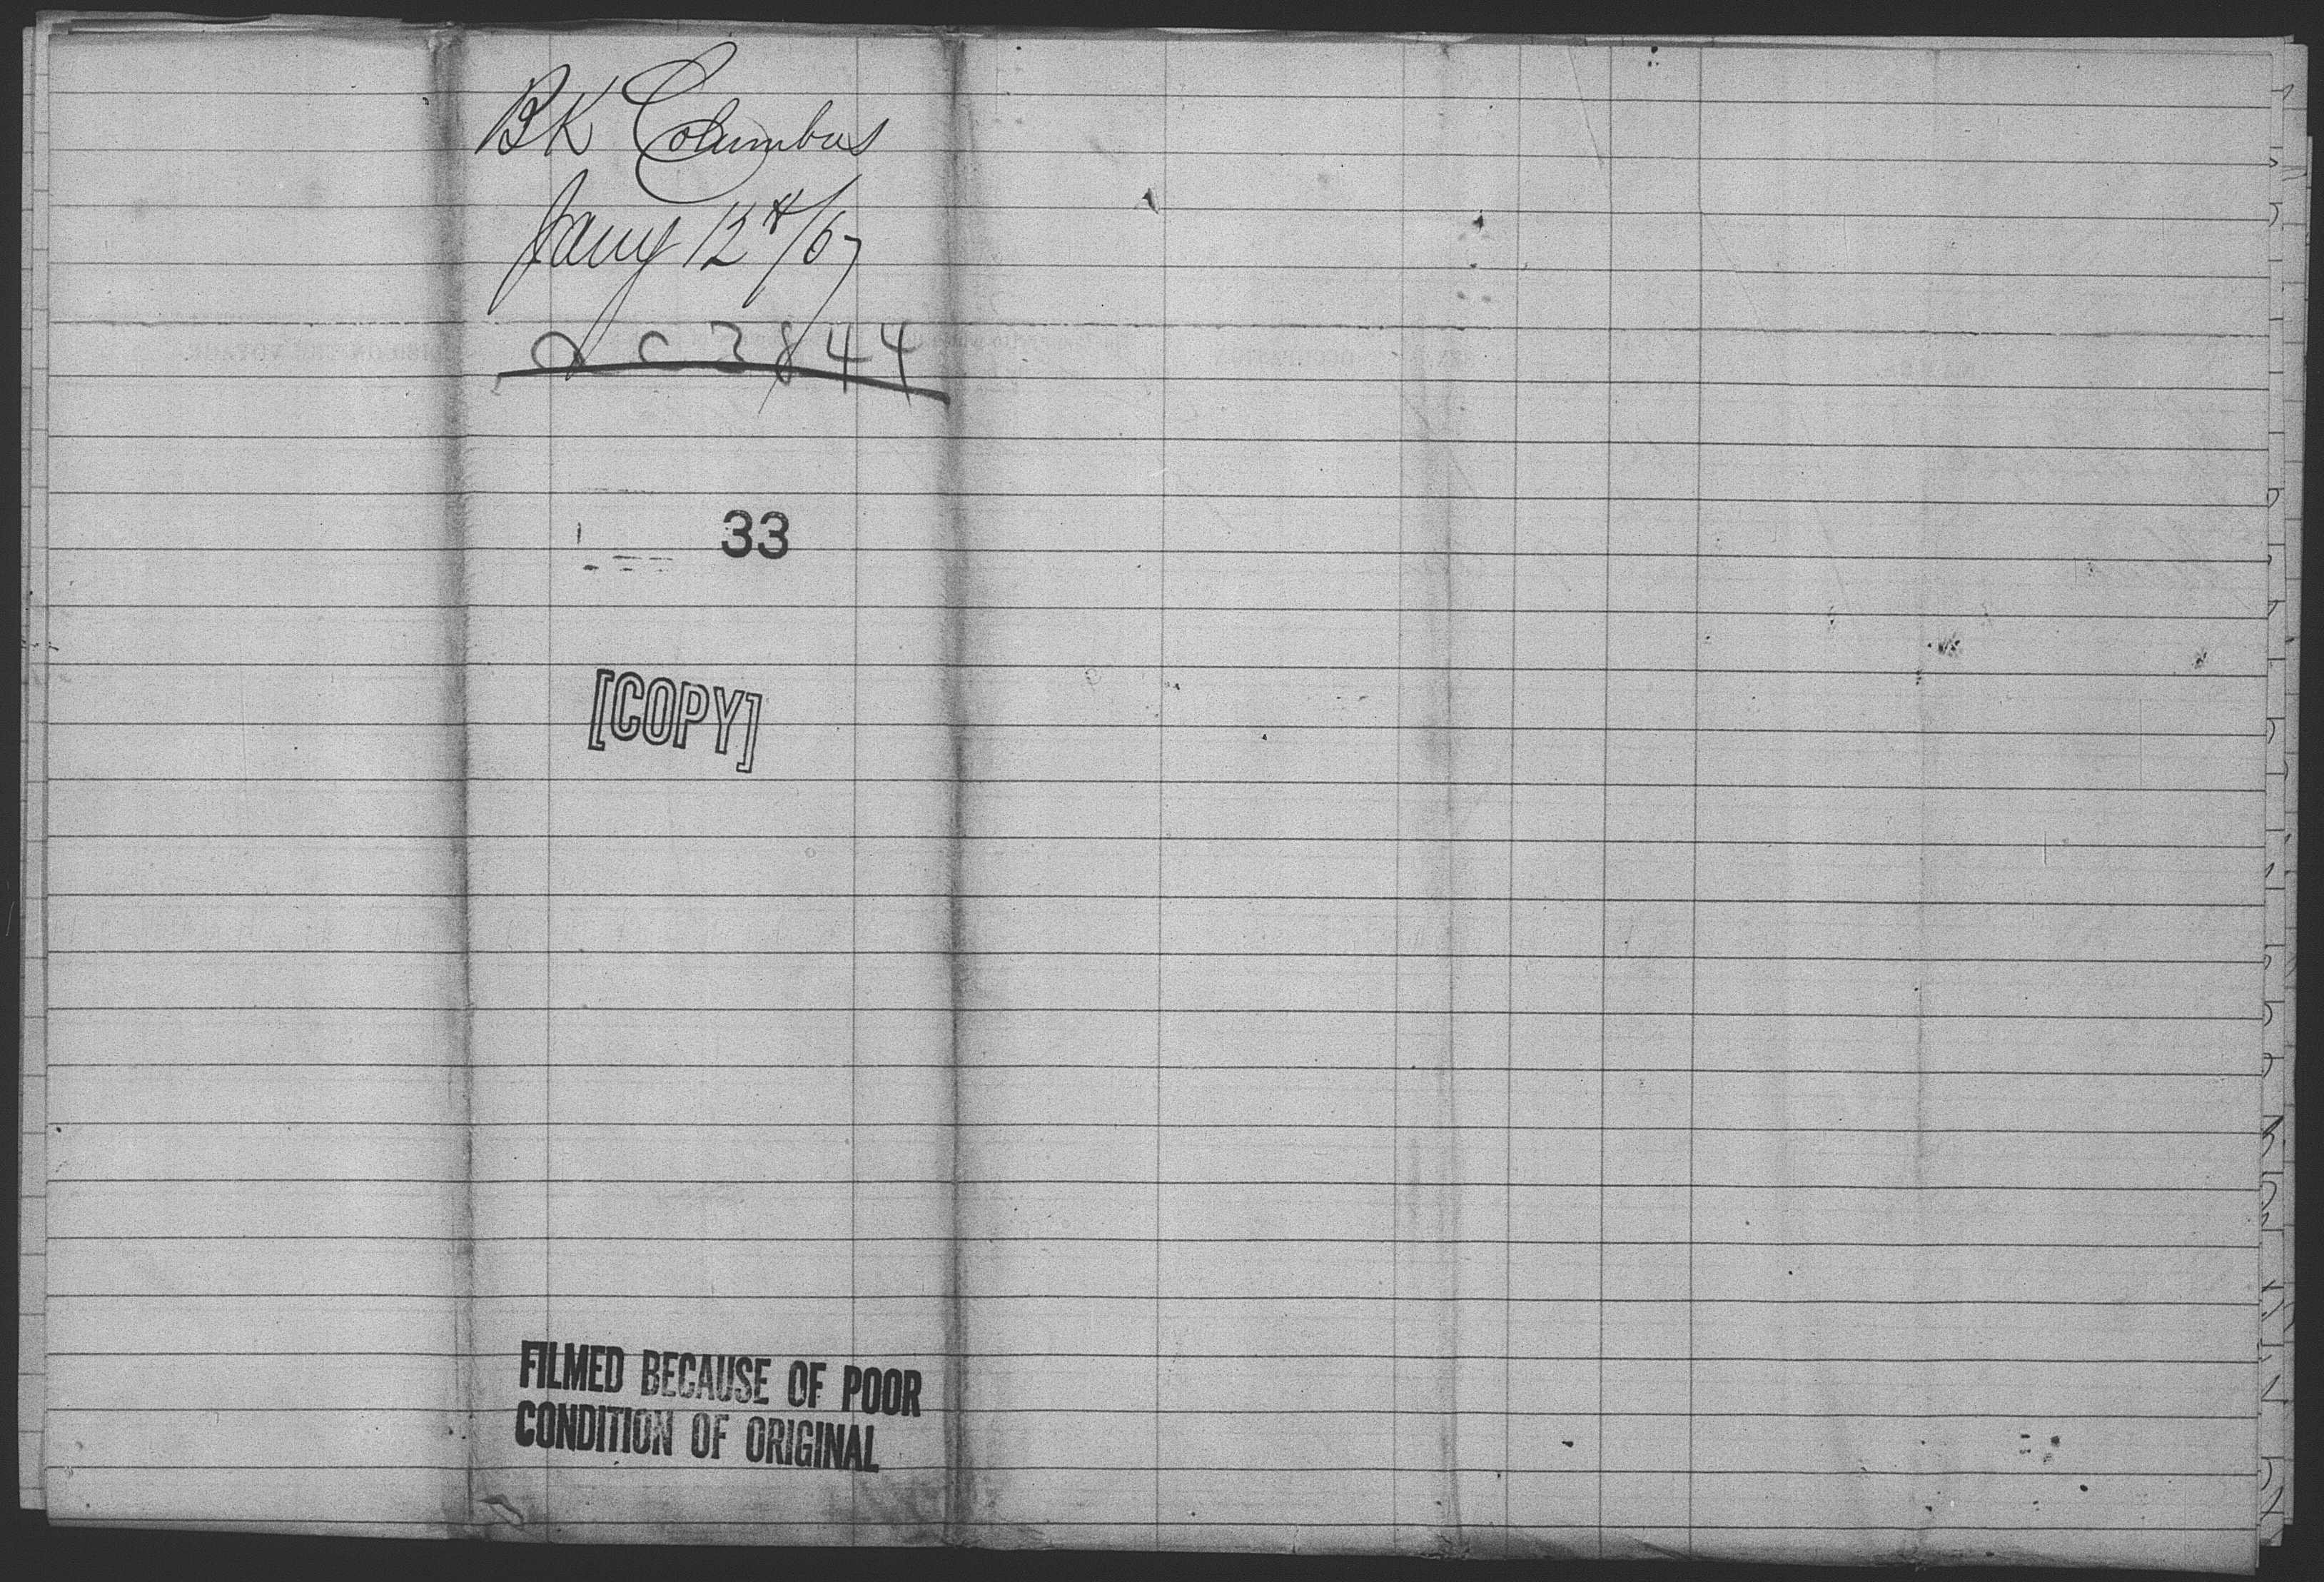 BK Columbus
Jany 12th/67
33
[COPY]
FILMED BECAUSE OF POOR
CONDITION OF ORIGINAL